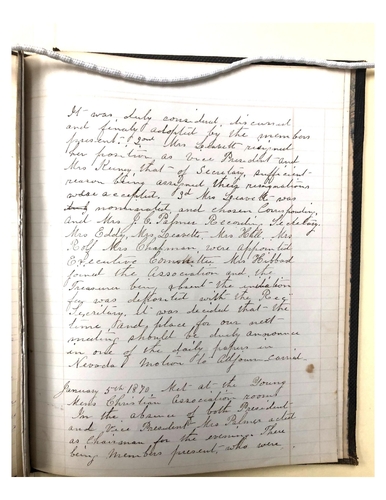 It was duly considered, discussed
and finaly adopted by the members
present. 2ond Mrs Leavett resigned
her position as Vice President and
Mrs Kinny that of Secretary, sufficient
reason being assigned their resignations
were accepted. 3d Mrs Leavett was
nominated and chosen Corresponding,
and Mrs J. C. Palmer Recordi. Secretary.
Mrs Eddy, Mrs Leavette, Mrs Hill, Mrs
Rolf Mrs Chapman, were appointed
Executive Committee Mrs Hibbad
joined the Association and the
Treasurer being absent the initiation
fee was deposited with the Rec
Secretary. It was decided that the
time, and place, for our next
meeting should be duly announce
in one of the daily papers in
Nevada Motion to Adjourn carrid.
January 5th 1870. Met at the Young
Mens Christian Association room
In the absence of both President
and Vice President Mrs Palmer acted
as Chairman, for the evening. There
being Members present, who were